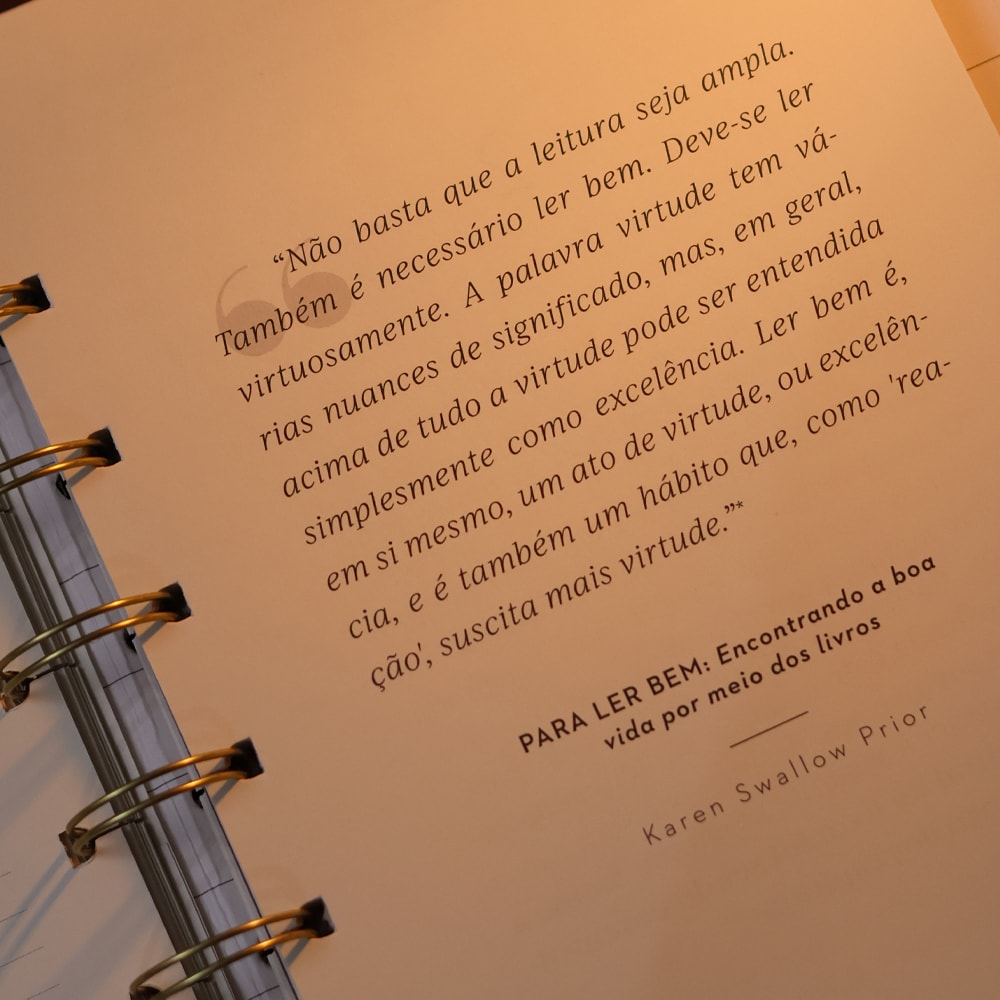 “Não basta que a leitura seja ampla.
Também é necessário ler bem. Deve-se ler
virtuosamente. A palavra virtude tem vá-
rias nuances de significado, mas, em geral,
acima de tudo a virtude pode ser entendida
simplesmente como excelência. Ler bem é,
em si mesmo, um ato de virtude, ou excelên-
cia, e é também um hábito que, como 'rea-
ção', suscita mais virtude.”*
PARA LER BEM: Encontrando a boa
vida por meio dos livros
Karen Swallow Prior